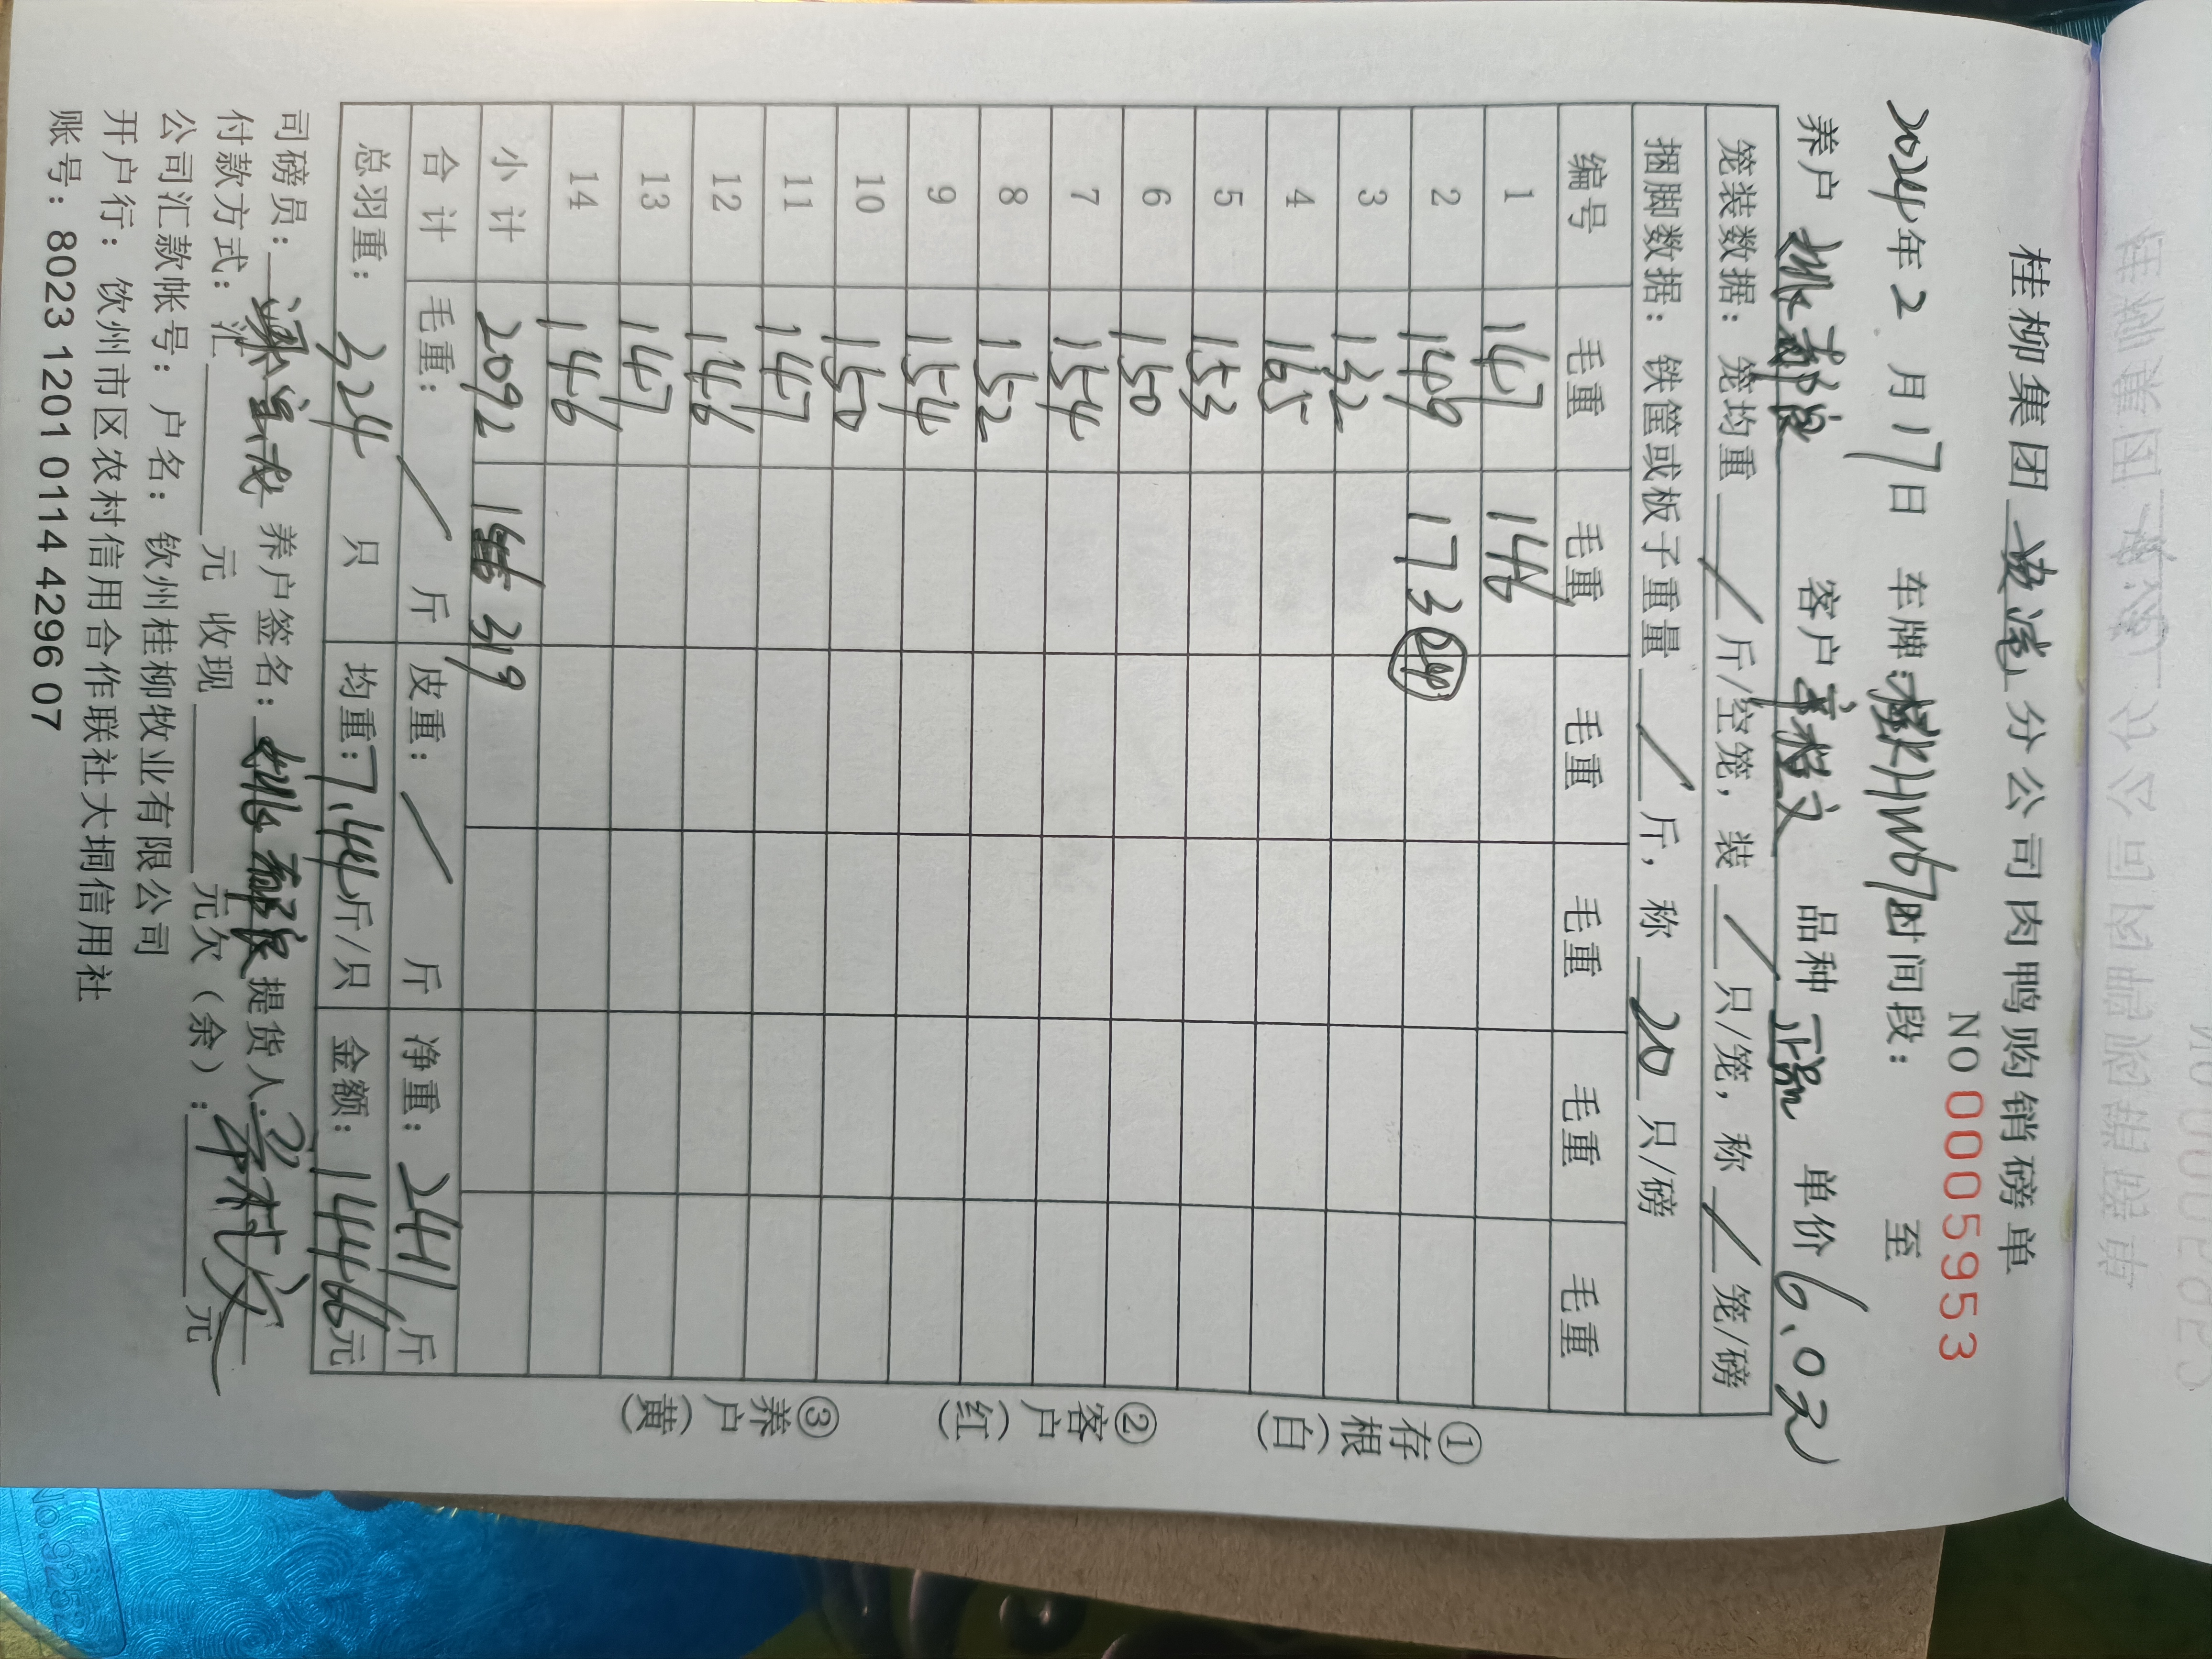 桂柳集团 分公司肉鸭购销磅单
NO 0005953
2024年2月17日 车牌: 时间段: 至
养户 姚 客户 李村文 品种 正品 单价 6.02
笼装数据: 笼均重 / 斤/空笼, 装 / 只/笼, 称 / 笼/磅
捆脚数据: 铁筐或板子重量 / 斤, 称 20 只/磅
编号 毛重 毛重 毛重 毛重 毛重 毛重
1 147 146
2 149 173 (24)
3 132
4 165
5 153
6 150
7 154
8 152
9 154
10 150
11 147
12 146
13 147
14 146
小计 2092 319
合计 毛重: / 斤 皮重: / 斤 净重: 2411 斤
总羽重: 324 只 均重: 7.44 斤/只 金额: 14466元
司磅员: 养户签名: 姚 提货人: 李村文
付款方式: 汇 元 收现 元欠(余): 元
公司汇款帐号: 户名: 钦州桂柳牧业有限公司
开户行: 饮州市区农村信用合作联社大垌信用社
账号: 8023 1201 0114 4296 07
①存根(白) ②客户(红) ③养户(黄)
No.9252